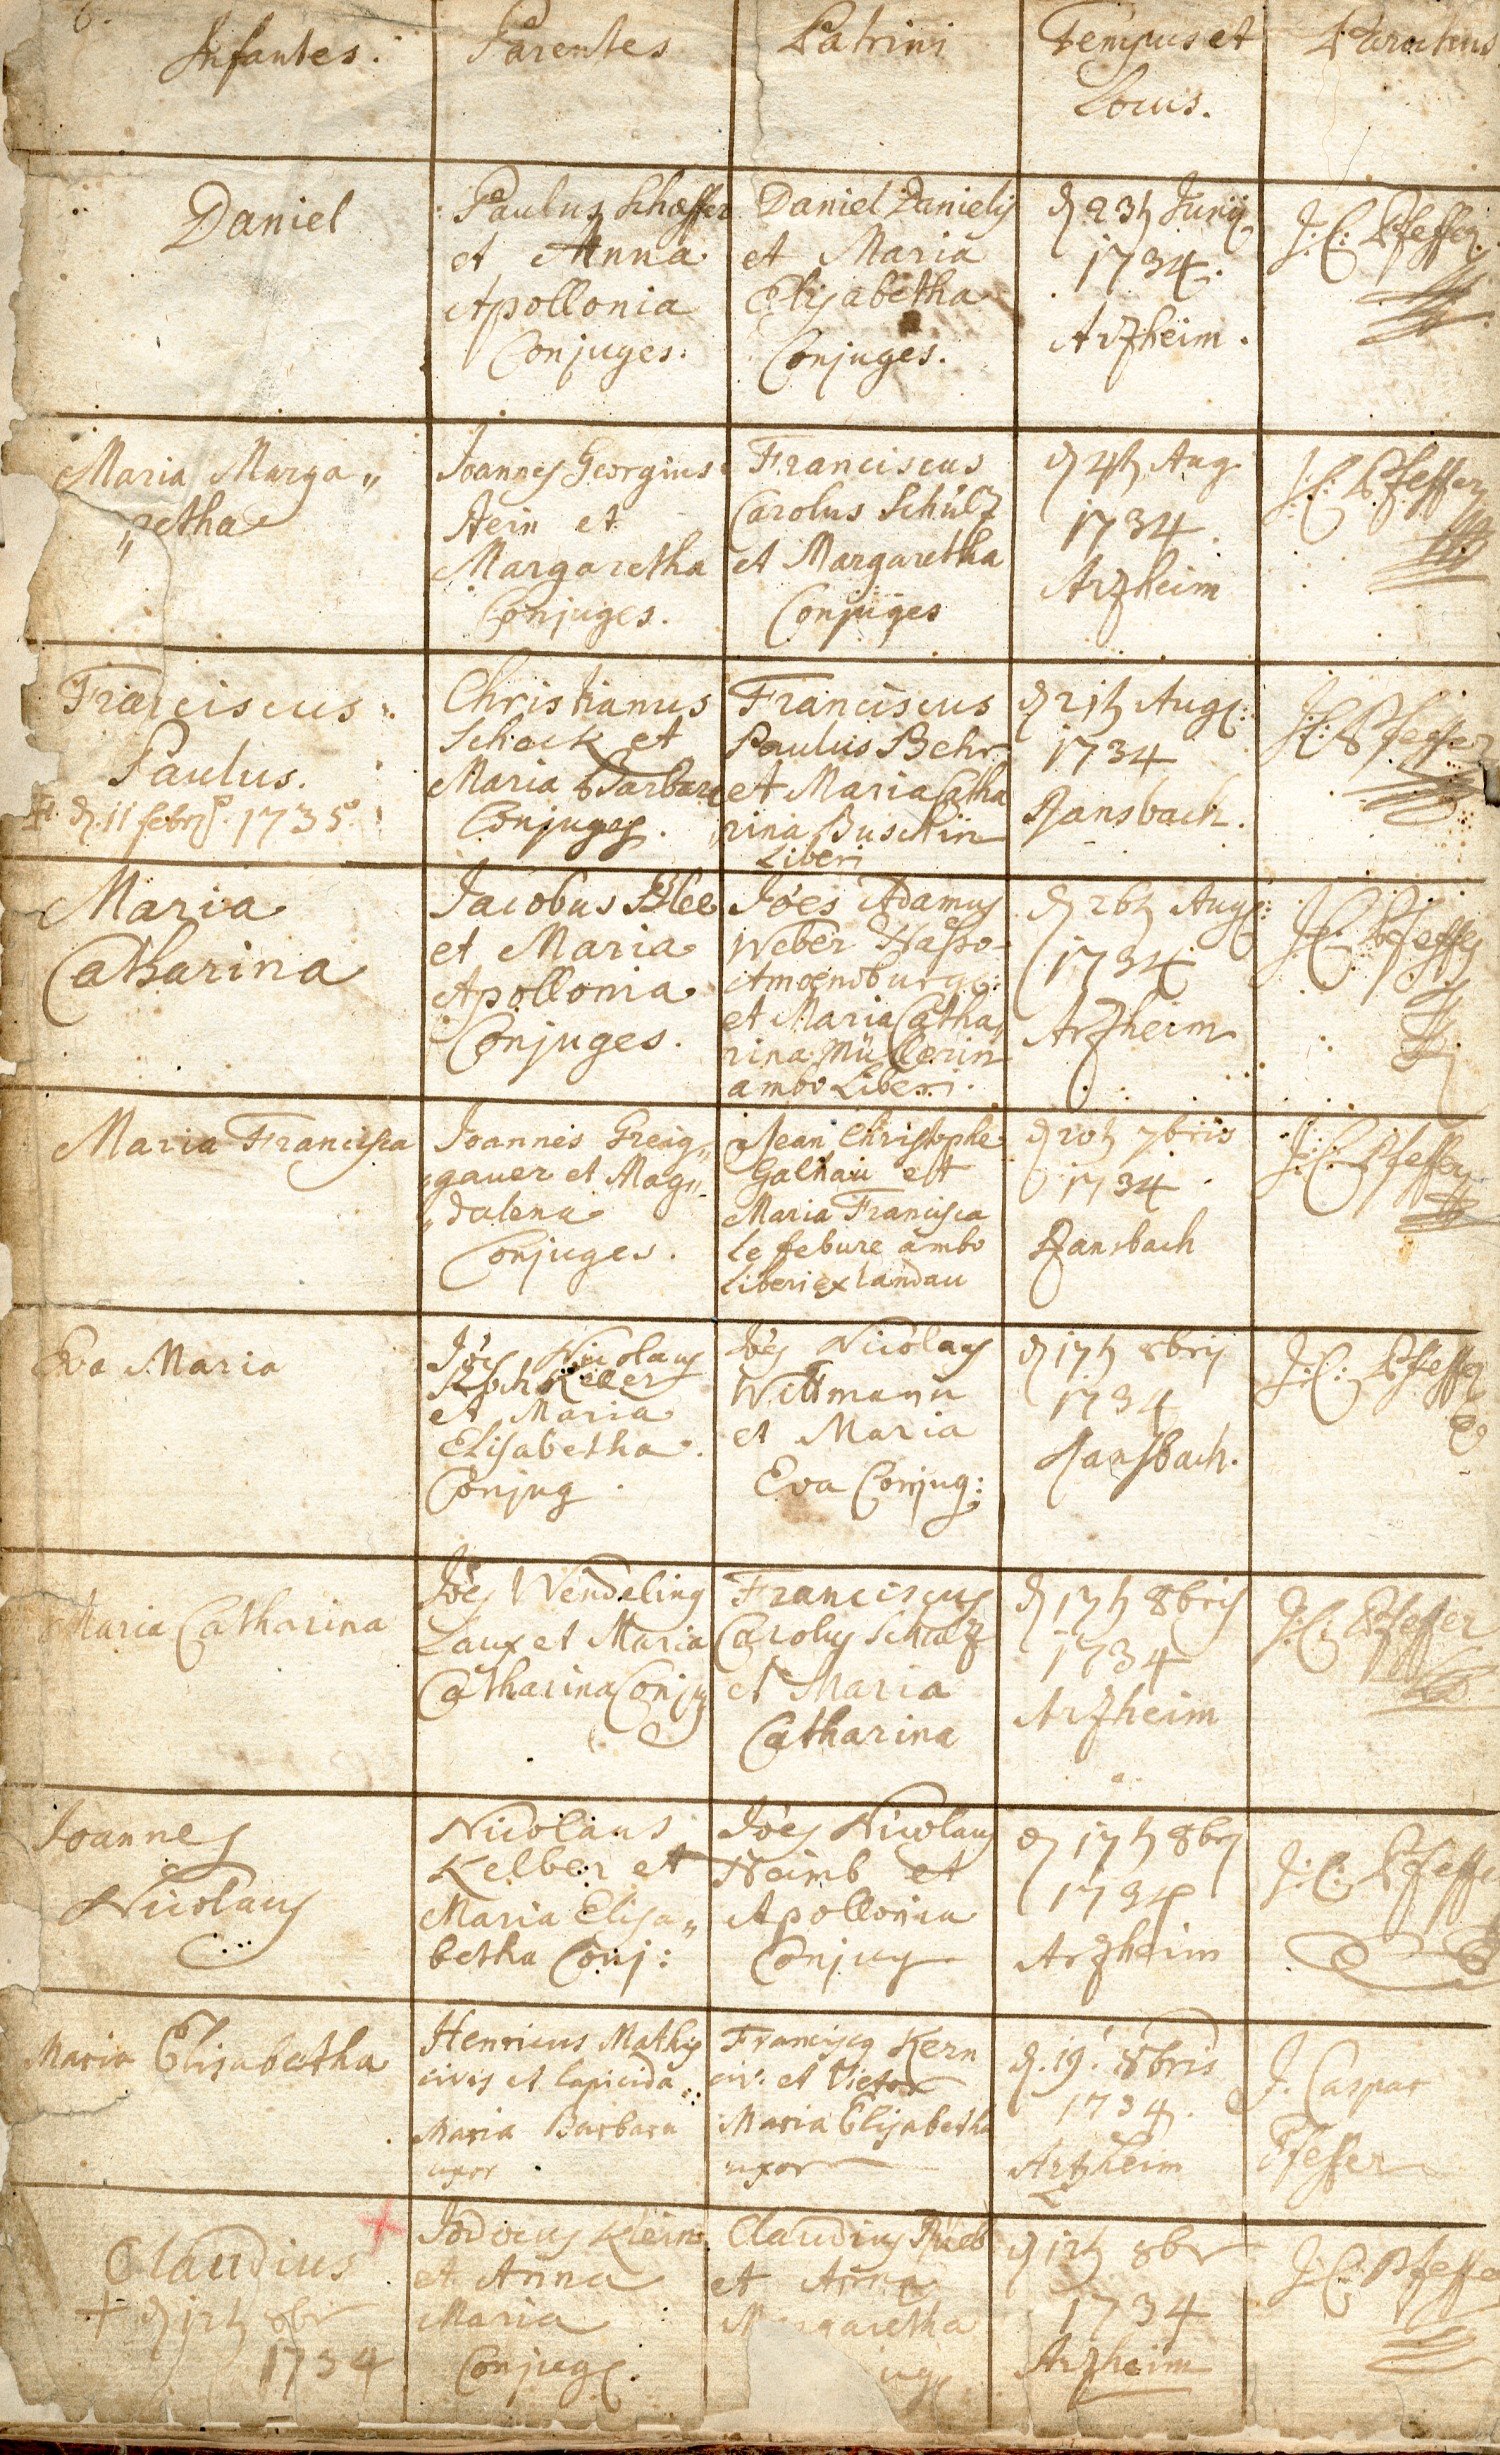 6.
Infantes.
Parentes
Patrini
Tempus et
Locus.
Parochus
Daniel
Paulus Schæffer
et Anna
Apollonia
Conjuges.
Daniel Danielij
et Maria
Elisabetha
Conjuges.
d 23t Junij
1734.
Arzheim.
J: C: Pfeffer
Maria Marga„
„retha
Joannes Georgius
Hein et
Margaretha
Conjuges.
Franciscus
Carolus Schulz
et Margaretha
Conjuges
d 4t Aug
1734.
Arzheim
J: C: Pfeffer
Franciscus
Paulus.
d. 11 febr. 1735.
Christianus
Schock et
Maria Barbara
Conjuges.
Franciscus
Paulus Behr
et Maria Catha
rina Buschin
Liberi
d 21t Aug:
1734
Ransbach.
J: C: Pfeffer
Maria
Catharina
Jacobus Blee
et Maria
Apollonia
Conjuges.
Jões Adamus
Weber Nasso-
Amoenoburg:
et Maria Catha„
rina Müllerin
ambo Liberi.
d 26t Aug:
1734
Arzheim
J: C: Pfeffer
Maria Francisca
Joannes Greig„
„gauer et Mag„
„dalena
Conjuges.
Jean Christophe
Galhau et
Maria Francisca
le febure ambo
liberi ex landau
d 20t 7bris
1734.
Ransbach
J: C: Pfeffer
Eva Maria
Jões Nicolaus
Keller
et Maria
Elisabetha.
Conjug.
Jões Nicolaus
Wittmann
et Maria
Eva Conjug:
d 17t 8bris
1734
Ransbach.
J: C: Pfeffer
Maria Catharina
Jões Wendelinus
Laux et Maria
Catharina Conjug
Franciscus
Carolus Schulz
et Maria
Catharina
d 17t 8bris
1734
Arzheim
J: C: Pfeffer
Joannes
Nicolaus
Nicolaus
Kelber et
Maria Elisa„
betha Conj:
Jões Nicolaus
Heimb et
Apollonia
Conjug
d 17t 8br
1734
Arzheim
J: C: Pfeffer
Maria Elisabetha
Henricus Mathis
civis et lapicida
Maria Barbara
uxor.
Franciscus Kern
civ: et Vietor
Maria Elisabetha
uxor
d. 19. 8bris
1734.
Artzheim
J. Caspar
Pfeffer
Claudius
+ d 12t 8br
1734
Jodocus Klein
et Anna
Maria
Conjug.
Claudius Rueb
et Anna
Margaretha
ug
d 12t 8br
1734
Arzheim
J: C: Pfeffer